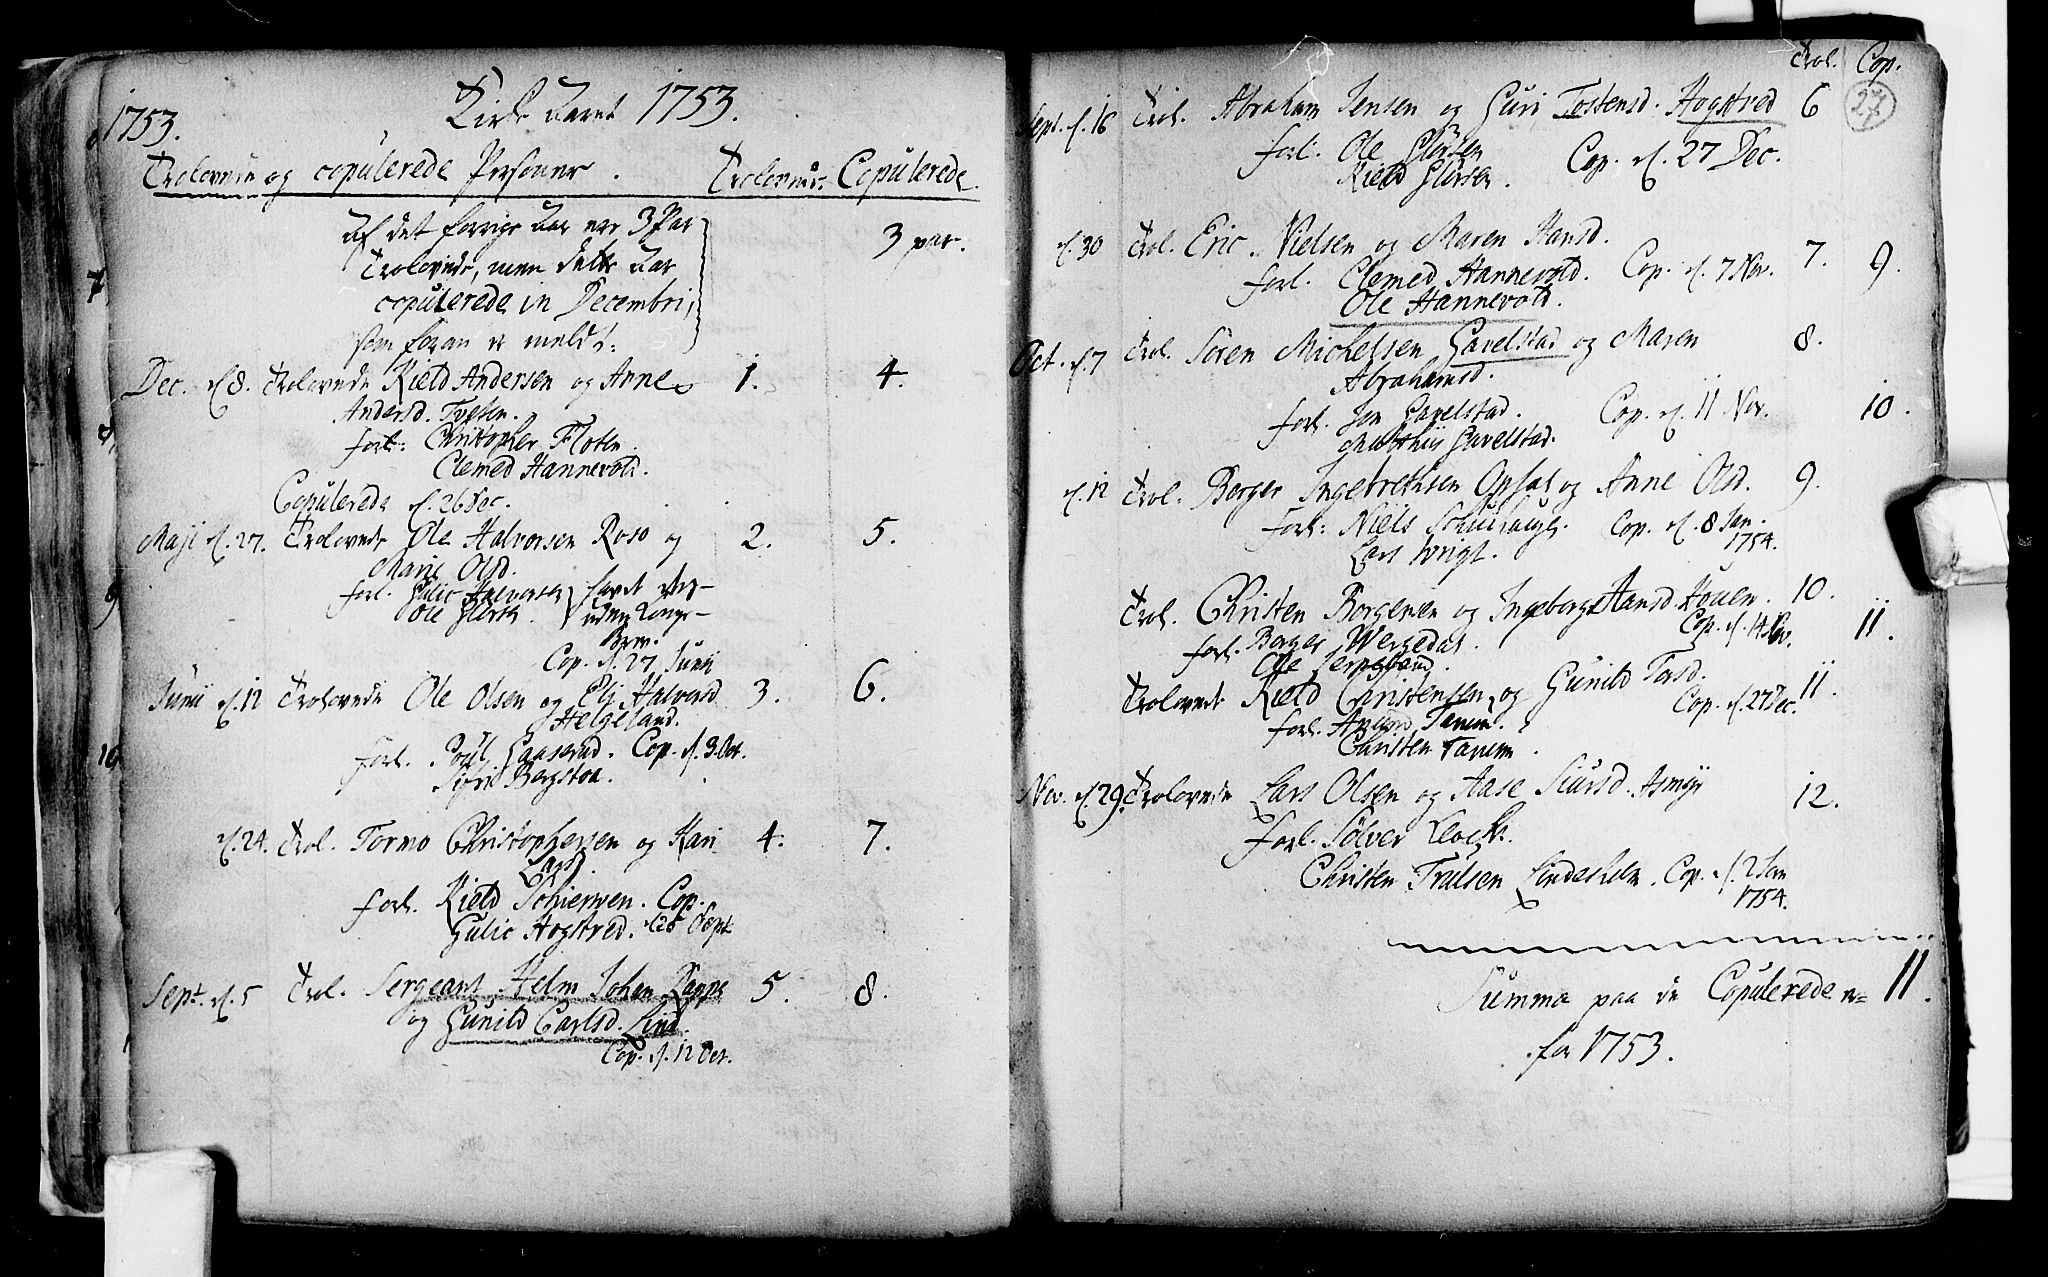 1753. Kirke Aaret 1753.
Trolovede og copulerede Personer. Trolovede. Copulerede.
Af det forrige Aar ere 3 Par 3 par.
Trolovede, men dette Aar
copulerede in Decembri,
som foran er meldt:
Dec. d. 8. Trolovede Kield Andersen og Anne 1. 4.
Andersd. Tvesen.
forl: Christopher Floten.
Clemed Hannevold.
Copulerede d. 26 Dec.
Maji d. 27. Trolovede Ole Halvorsen Roso og 2. 5.
Marie Olsd.
forl. Gulic Halvorsen
Ole
Cop. d. 27 Junii
Junii d. 12 Trolovede Ole Olsen og Eli Halvorsd 3. 6.
Helgeland.
forl. Poul Gaaserud. Cop. d. 3. Oct.
Bergstoa.
d. 24. Trol. Tormo Christophersen og Kari 4. 7.
Larsd.
forl. Kield Schierven. Cop.
Gulic Hogstred. d. 26 Sept.
Sept. d. 5 Trol. Sergeant Helm Johan Rappe 5. 8.
og Gunild Carlsd. Lind.
Cop. d. 12 Oct.
Trol. Cop.
27
Sept. d. 16 Trol. Abraham Jensen og Guri Tostensd. Hogstred 6
forl. Ole Glørsen Cop. d. 27 Dec.
Kield Glørsen.
d. 30 Trol. Eric Nielsen og Maren Hansd.
forl. Clemed Hannevold. Cop. d. 7 Nov. 7. 9.
Ole Hannevold.
Oct. d. 7 Trol. Sören Michelsen Gavelstad og Maren 8.
Abrahamsd.
forl. Jon Gavelstad. Cop. d. 11 Nov. 10.
Mathiis Gavelstad.
d. 12 Trol. Borger Ingebrethsen Opsal og Anne Olsd. 9.
forl: Niels Cop. d. 8 Jan.
Lars Wrigt. 1754.
Trol. Christen Borgersen og Ingeborg Hansd. Houen. 10.
forl. Borger Cop. d. 14 Nov. 11.
Ole
Trolovede Kield Christensen og Gunild Torsd. 11.
forl. Tanem. Cop. d. 27 Dec.
Christen Tanem.
Nov. d. 29. Trolovede Lars Olsen og Aase Siursd. Asmyr 12.
forl. Sølver Klock.
Christen Trulsen Lindesholm. Cop. d. 2 Jan
1754.
Summa paa de Copulerede er 11.
for 1753.